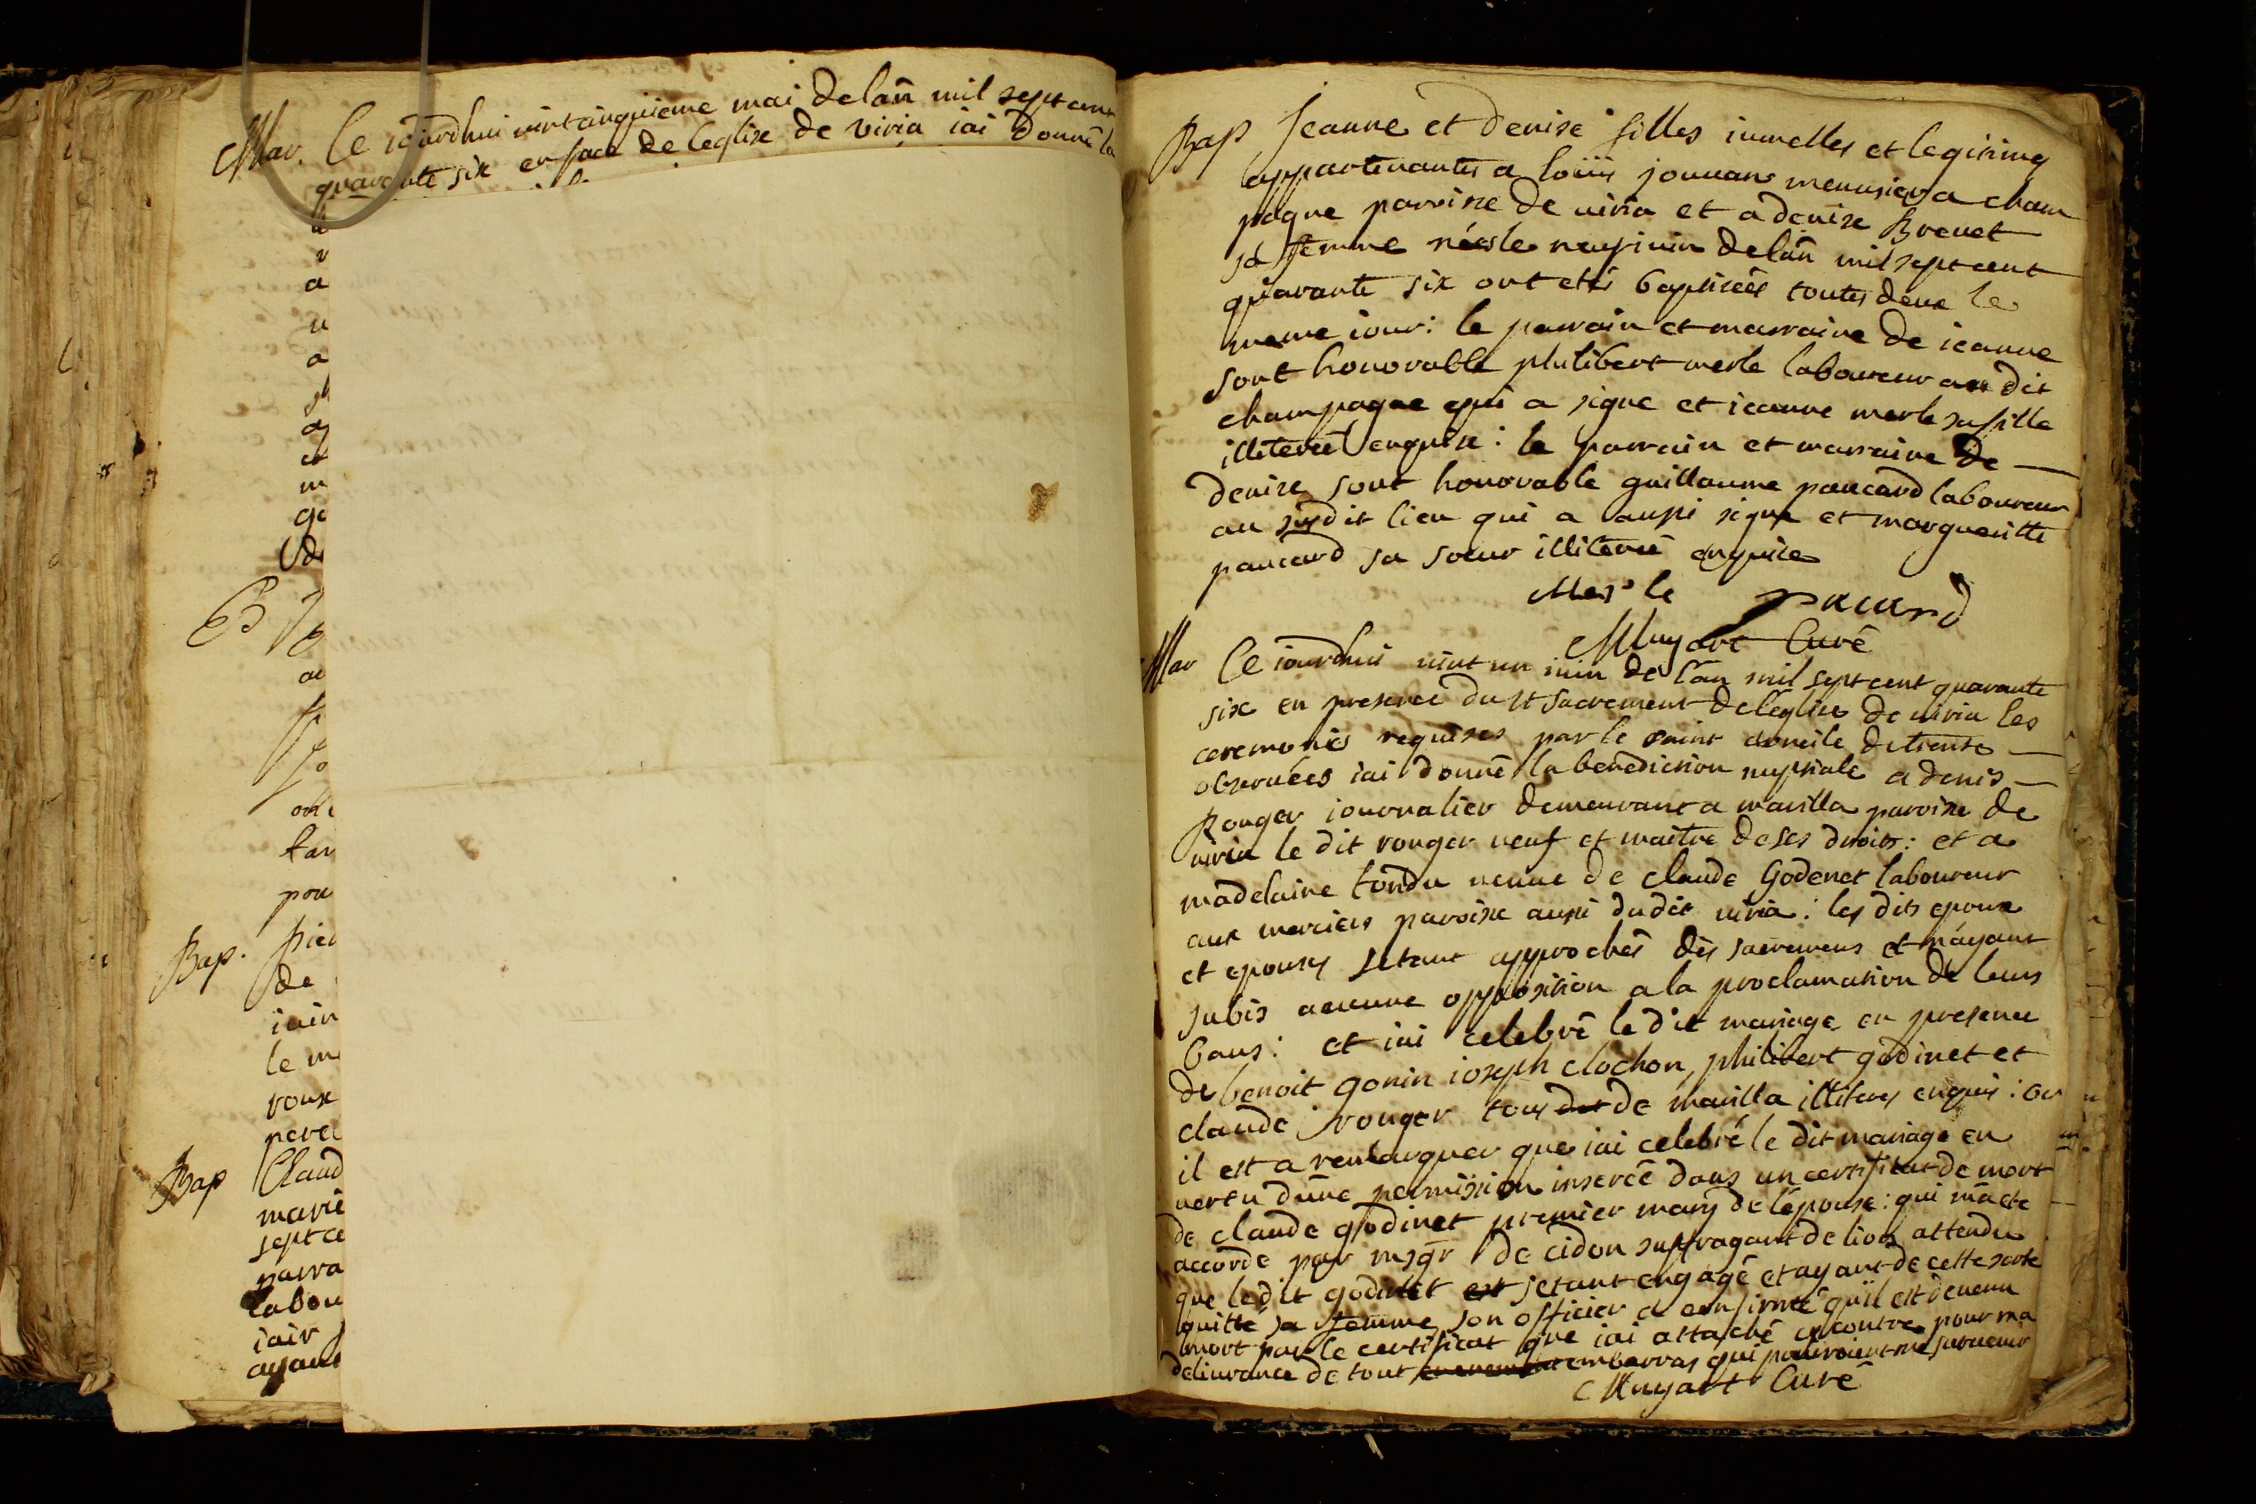 Mar. Ce iourdhui vint cinquieme mai de lañ mil sept cent
quarante six en face de leglise de viria iai donné la
a
u
a
a
et
m
de
B
a
ont
pou
Bap. pier
de
iuin
le m
roux
pere
Bap Claud
marie
sept ce
parra
labou
iair
ayant
Bap Jeanne et denise filles iumelles et legitimes
appartenantes a loüis jouuan menusier a cham
pagne paroisse de viria et a denise Brevet
sa femme nées le neuf iuin de lañ mil sept cent
quarante six ont etés baptisées toutes deux le
meme iour: le parrain et marraine de ieanne
sont honorable philibert merle laboureur au dit
champagne qui a signe et ieanne merle sa fille
illiterée enquise: le parrain et marraine de
denise sont honorable guillaume paucard laboureur
au susdit lieu qui a aussi signe et margueritte
paucard sa soeur illiterée enquise
Merle pacard
Muyart Curé
Mar Ce iourdhui vint un iuin de lan mil sept cent quarante
six en presence du st sacrement de leglise de viria les
ceremonies requises par le saint concile de trente
observées iai donné la benediction nuptiale a denis
Rouger iournalier demeurant a marilla paroisse de
viria le dit rouger veuf et maitre de ses droits: et a
madelaine tondu veuve de claude Godenet laboureur
aux merciers paroisse aussi dudit viria: les dits epoux
et epouses setant approchés des sacremens et nayant
subis aucune opposition a la proclamation de leurs
bans: et iai celebré le dit mariage en presence
de benoit gonin ioseph clochon, philibert godinet et
claude rouger tous de marilla illiteres enquis: or
il est a remarquer que iai celebré le dit mariage en
vertu dune permission inserée dans un certificat de mort
de claude godinet premier mary de lepouse: qui ma ete
accordé par msgr de cidon suffragant de lion attendu
que ledit godinet setant engagé et ayant de cette sorte
quitté sa femme son officier a confirmé quïl est devenu
mort par le certificat que iai attaché cy contre pour ma
deliurance de tout embarras qui pouroient me survenir
Muyart Curé